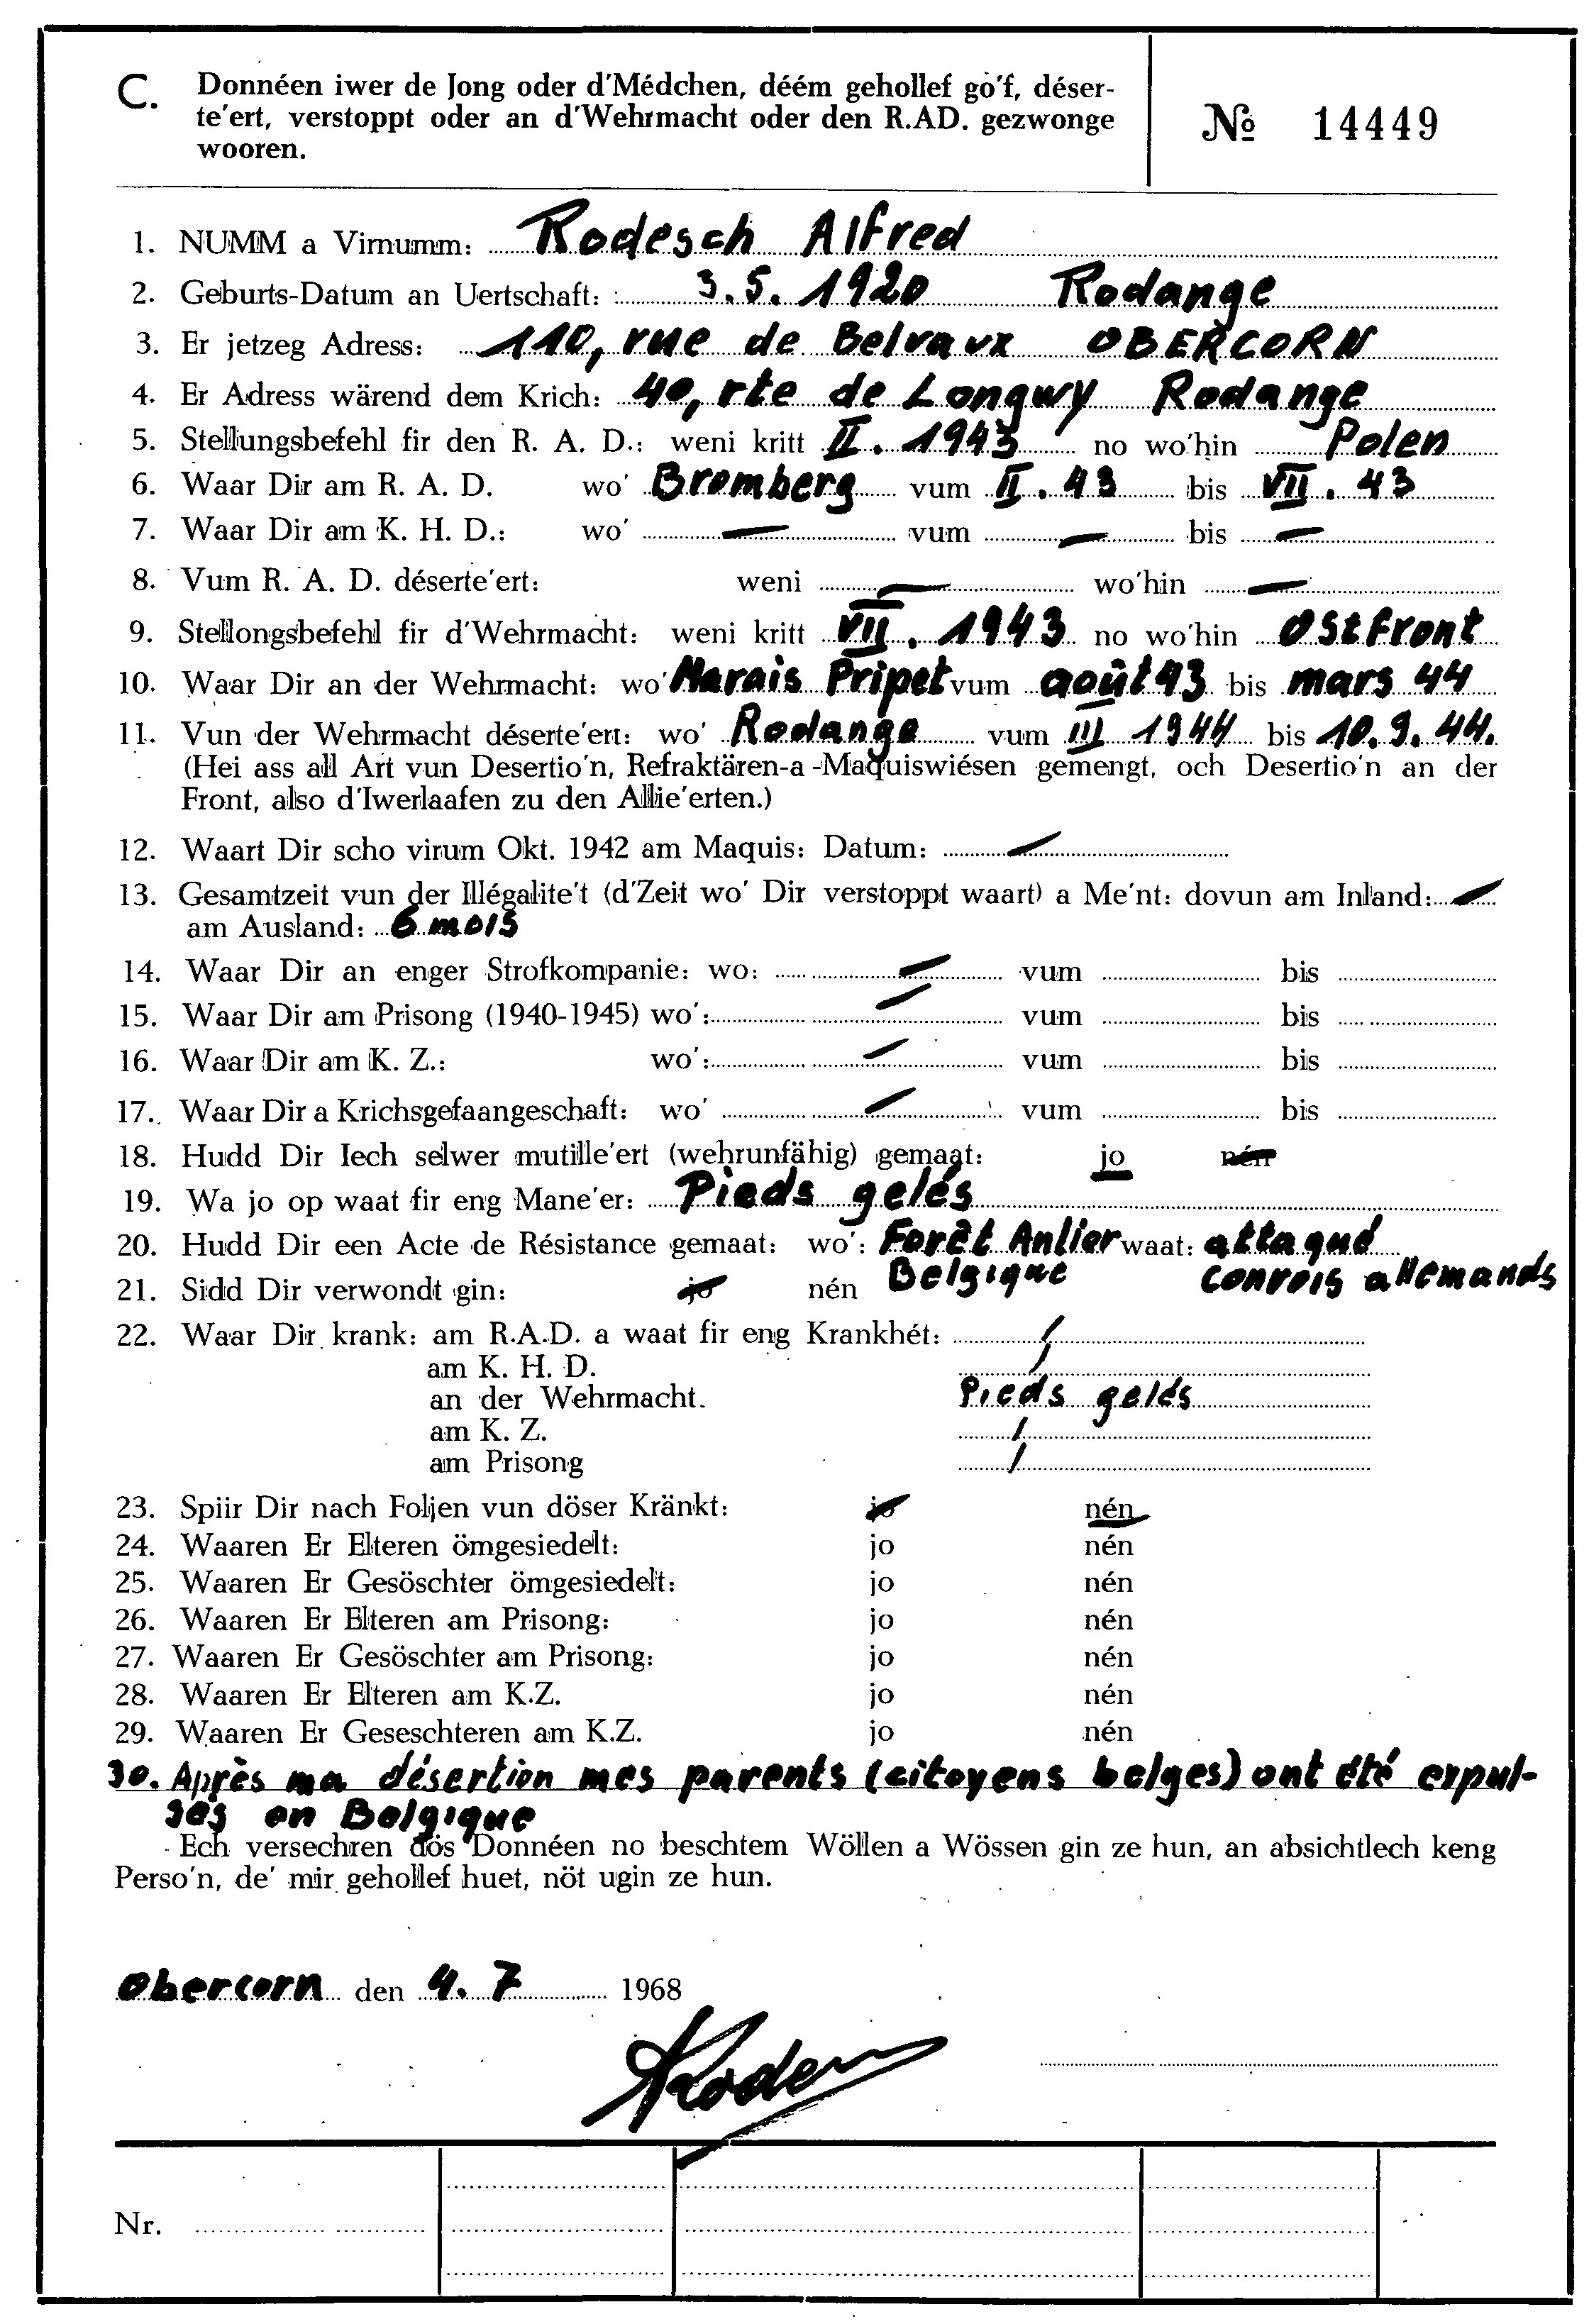 C. Donnéen iwer de Jong oder d'Médchen, déém gehollef go'f, déser-
te'ert, verstoppt oder an d'Wehrmacht oder den R.AD. gezwonge
wooren.
№ 14449
1. NUMM a Virnumm: Rodesch Alfred
2. Geburts-Datum an Uertschaft: 3.5.1920 Rodange
3. Er jetzeg Adress: 110, rue de Belvaux OBERCORN
4. Er Adress wärend dem Krich: 40, rte de Longwy Rodange
5. Stellungsbefehl fir den R. A. D.: weni kritt II. 1943 no wo'hin Polen
6. Waar Dir am R. A. D. wo' Bromberg vum II. 43 bis VII. 43
7. Waar Dir am K. H. D.: wo' — vum — bis —
8. Vum R. A. D. déserte'ert: weni — wo'hin —
9. Stellongsbefehl fir d'Wehrmacht: weni kritt VII. 1943 no wo'hin Ostfront
10. Waar Dir an der Wehrmacht: wo' Marais Pripet vum août 43 bis mars 44
11. Vun der Wehrmacht déserte'ert: wo' Rodange vum III 1944 bis 10.9.44.
(Hei ass all Art vun Desertio'n, Refraktären-a-Maquiswiésen gemengt, och Desertio'n an der
Front, also d'Iwerlaafen zu den Allie'erten.)
12. Waart Dir scho virum Okt. 1942 am Maquis: Datum: —
13. Gesamtzeit vun der Illégalite't (d'Zeit wo' Dir verstoppt waart) a Me'nt: dovun am Inland: —
am Ausland: 6 mois
14. Waar Dir an enger Strofkompanie: wo: — vum bis
15. Waar Dir am Prisong (1940-1945) wo': — vum bis
16. Waar Dir am K. Z.: wo': — vum bis
17. Waar Dir a Krichsgefaangeschaft: wo' — vum bis
18. Hudd Dir Iech selwer mutille'ert (wehrunfähig) gemaat: jo nén
19. Wa jo op waat fir eng Mane'er: Pieds gelés
20. Hudd Dir een Acte de Résistance gemaat: wo': Forêt Anlier waat: attaqué
21. Sidd Dir verwondt gin: jo nén Belgique convois allemands
22. Waar Dir krank: am R.A.D. a waat fir eng Krankhét: /
am K. H. D. /
an der Wehrmacht. Pieds gelés
am K. Z. /
am Prisong /
23. Spiir Dir nach Foljen vun döser Kränkt: jo nén
24. Waaren Er Elteren ömgesiedelt: jo nén
25. Waaren Er Gesöschter ömgesiedelt: jo nén
26. Waaren Er Elteren am Prisong: jo nén
27. Waaren Er Gesöschter am Prisong: jo nén
28. Waaren Er Elteren am K.Z. jo nén
29. Waaren Er Geseschteren am K.Z. jo nén
30. Après ma désertion mes parents (citoyens belges) ont été expul-
sés en Belgique
Ech versechren dös Donnéen no beschtem Wöllen a Wössen gin ze hun, an absichtlech keng
Perso'n, de' mir gehollef huet, nöt ugin ze hun.
Obercorn den 4. 7 1968
Nr.